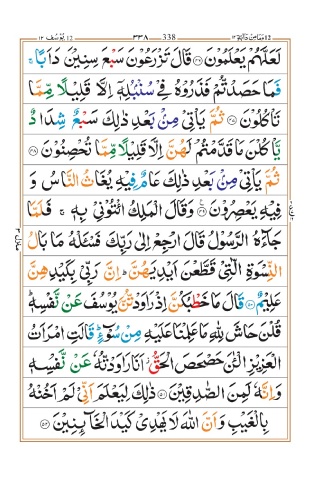 يُوْسُف ١٢ ٣٣٨ 338 وَمَا مِنْ دَآبَّةٍ ١٢
لَعَلَّهُمْ يَعْلَمُوْنَ ﴿۴۶﴾ قَالَ تَزْرَعُوْنَ سَبْعَ سِنِيْنَ دَاَبًا ۚ
فَمَا حَصَدْتُّمْ فَذَرُوْهُ فِيْ سُنْۢبُلِهٖٓ اِلَّا قَلِيْلًا مِّمَّا
تَاْكُلُوْنَ ﴿۴۷﴾ ثُمَّ يَاْتِيْ مِنْۢ بَعْدِ ذٰلِكَ سَبْعٌ شِدَادٌ
يَّاْكُلْنَ مَا قَدَّمْتُمْ لَهُنَّ اِلَّا قَلِيْلًا مِّمَّا تُحْصِنُوْنَ ﴿۴۸﴾
ثُمَّ يَاْتِيْ مِنْۢ بَعْدِ ذٰلِكَ عَامٌ فِيْهِ يُغَاثُ النَّاسُ وَ
فِيْهِ يَعْصِرُوْنَ ﴿۴۹﴾ وَقَالَ الْمَلِكُ ائْتُوْنِيْ بِهٖ ۚ فَلَمَّا
جَآءَهُ الرَّسُوْلُ قَالَ ارْجِعْ اِلٰى رَبِّكَ فَسْـَٔلْهُ مَا بَالُ
النِّسْوَةِ الّٰتِيْ قَطَّعْنَ اَيْدِيَهُنَّ ۭ اِنَّ رَبِّيْ بِكَيْدِهِنَّ
عَلِيْمٌ ﴿۵۰﴾ قَالَ مَا خَطْبُكُنَّ اِذْ رَاوَدْتُّنَّ يُوْسُفَ عَنْ نَّفْسِهٖ ۭ
قُلْنَ حَاشَ لِلّٰهِ مَا عَلِمْنَا عَلَيْهِ مِنْ سُوْٓءٍ ۭ قَالَتِ امْرَاَتُ
الْعَزِيْزِ الْـٰٔنَ حَصْحَصَ الْحَقُّ ۡ اَنَا رَاوَدْتُّهٗ عَنْ نَّفْسِهٖ
وَاِنَّهٗ لَمِنَ الصّٰدِقِيْنَ ﴿۵۱﴾ ذٰلِكَ لِيَعْلَمَ اَنِّيْ لَمْ اَخُنْهُ
بِالْغَيْبِ وَاَنَّ اللّٰهَ لَا يَهْدِيْ كَيْدَ الْخَآئِنِيْنَ ﴿۵۲﴾